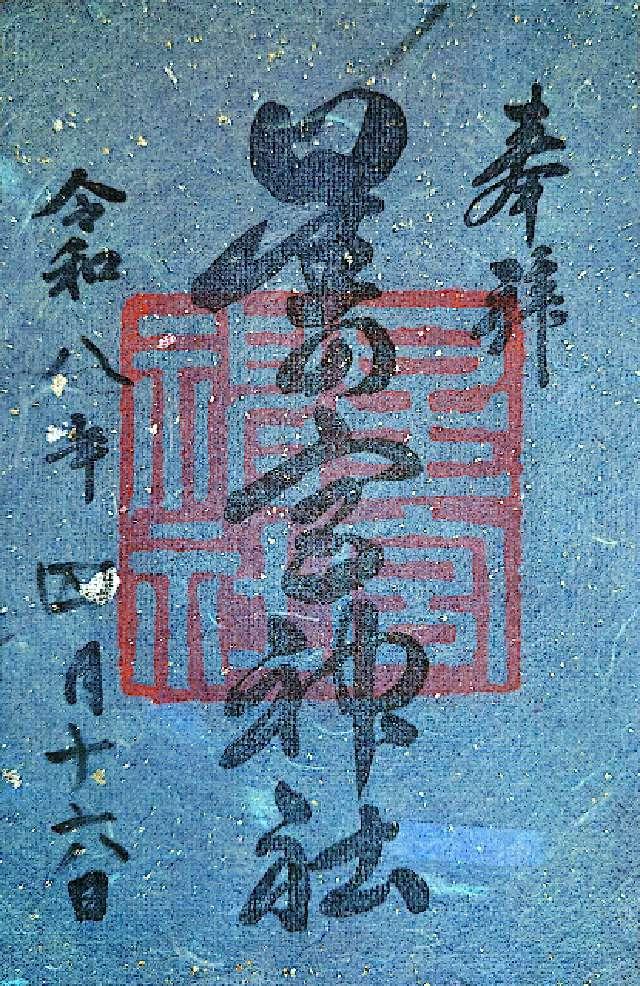 奉拜
星の宮神社
令和八年四月十六日